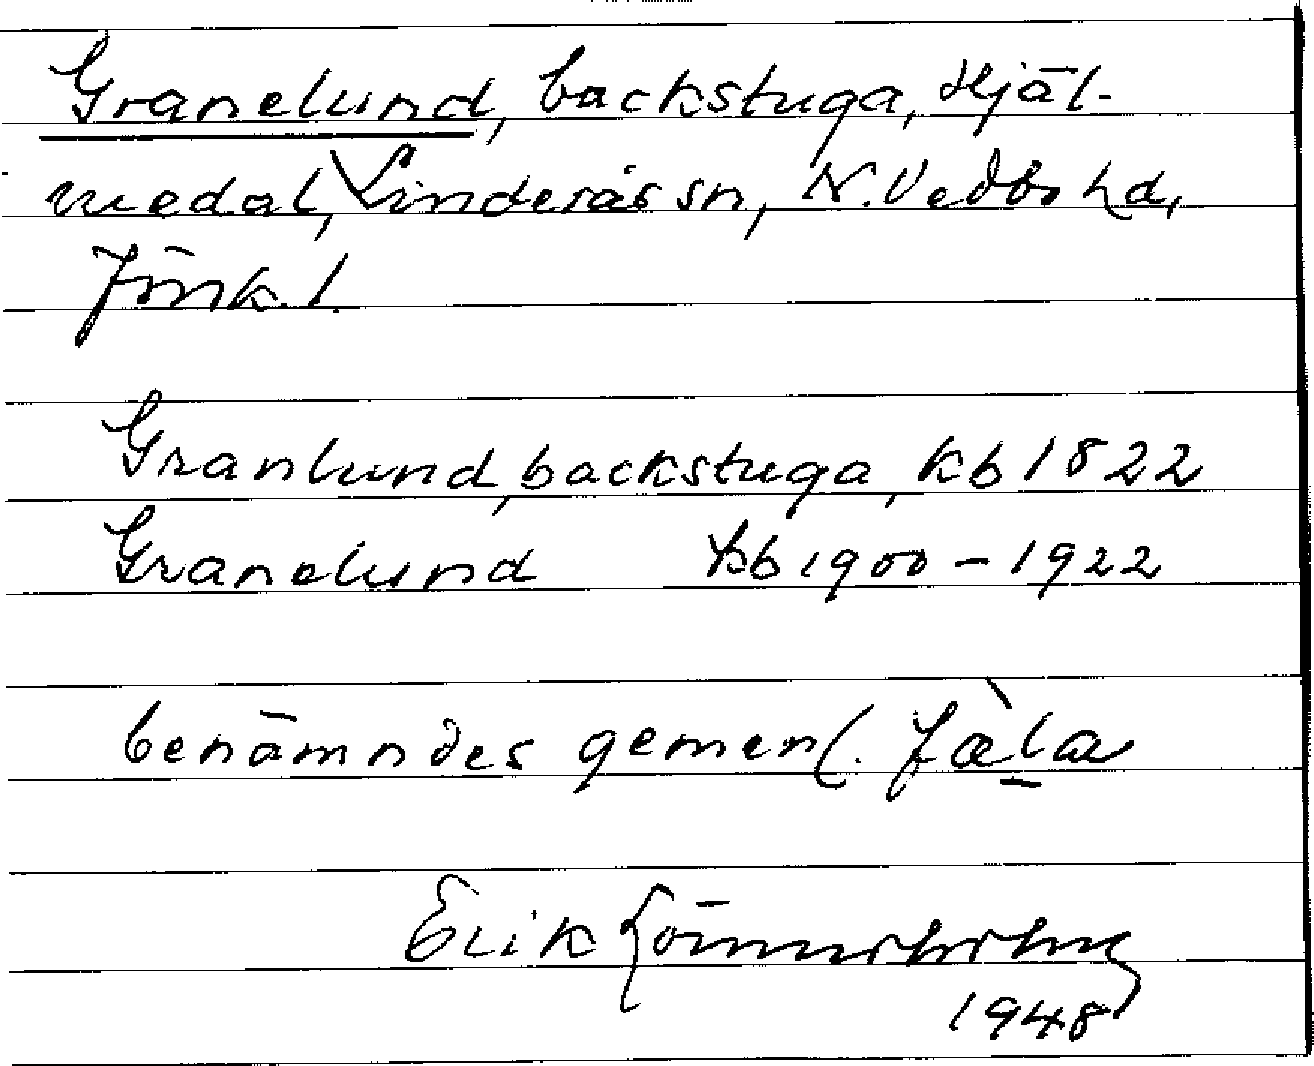 Granelund, backstuga, Hjäl-
medal, Linderås sn, N. Vedbo hd,
Jönk. l.
Granlund, backstuga, kb 1822
Granelund kb 1900-1922
benämndes gemenl.
Erik Lönnerholm
1948